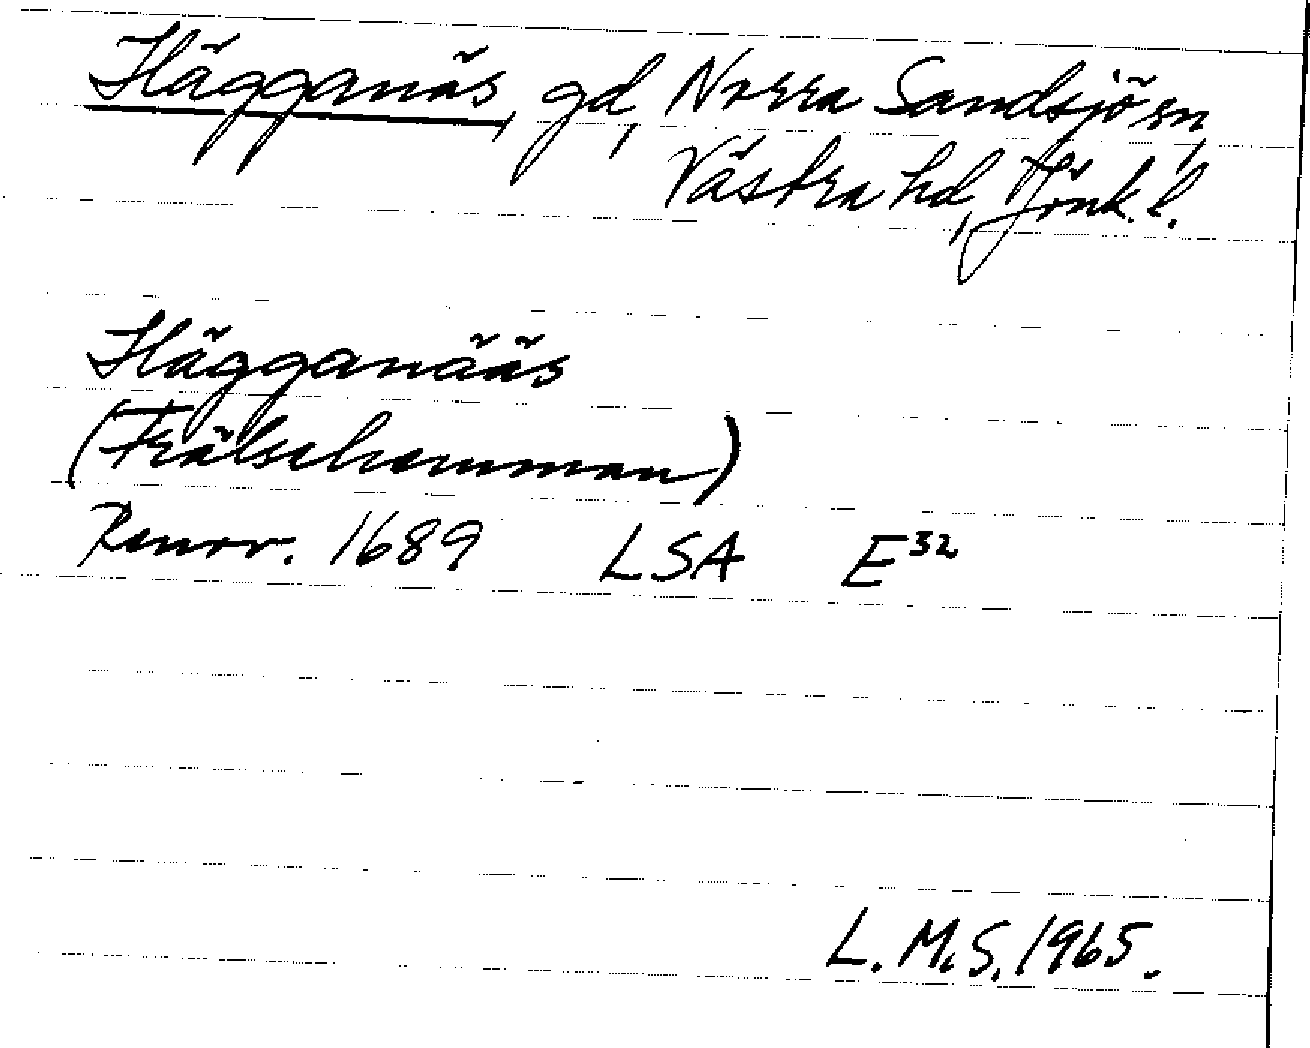 Hägganäs, gd, Norra Sandsjö sn,
Västra hd, Jönk. l.
Hägganääs
(Frälsehemman)
Renov. 1689 LSA E32
L. M. S. 1965.